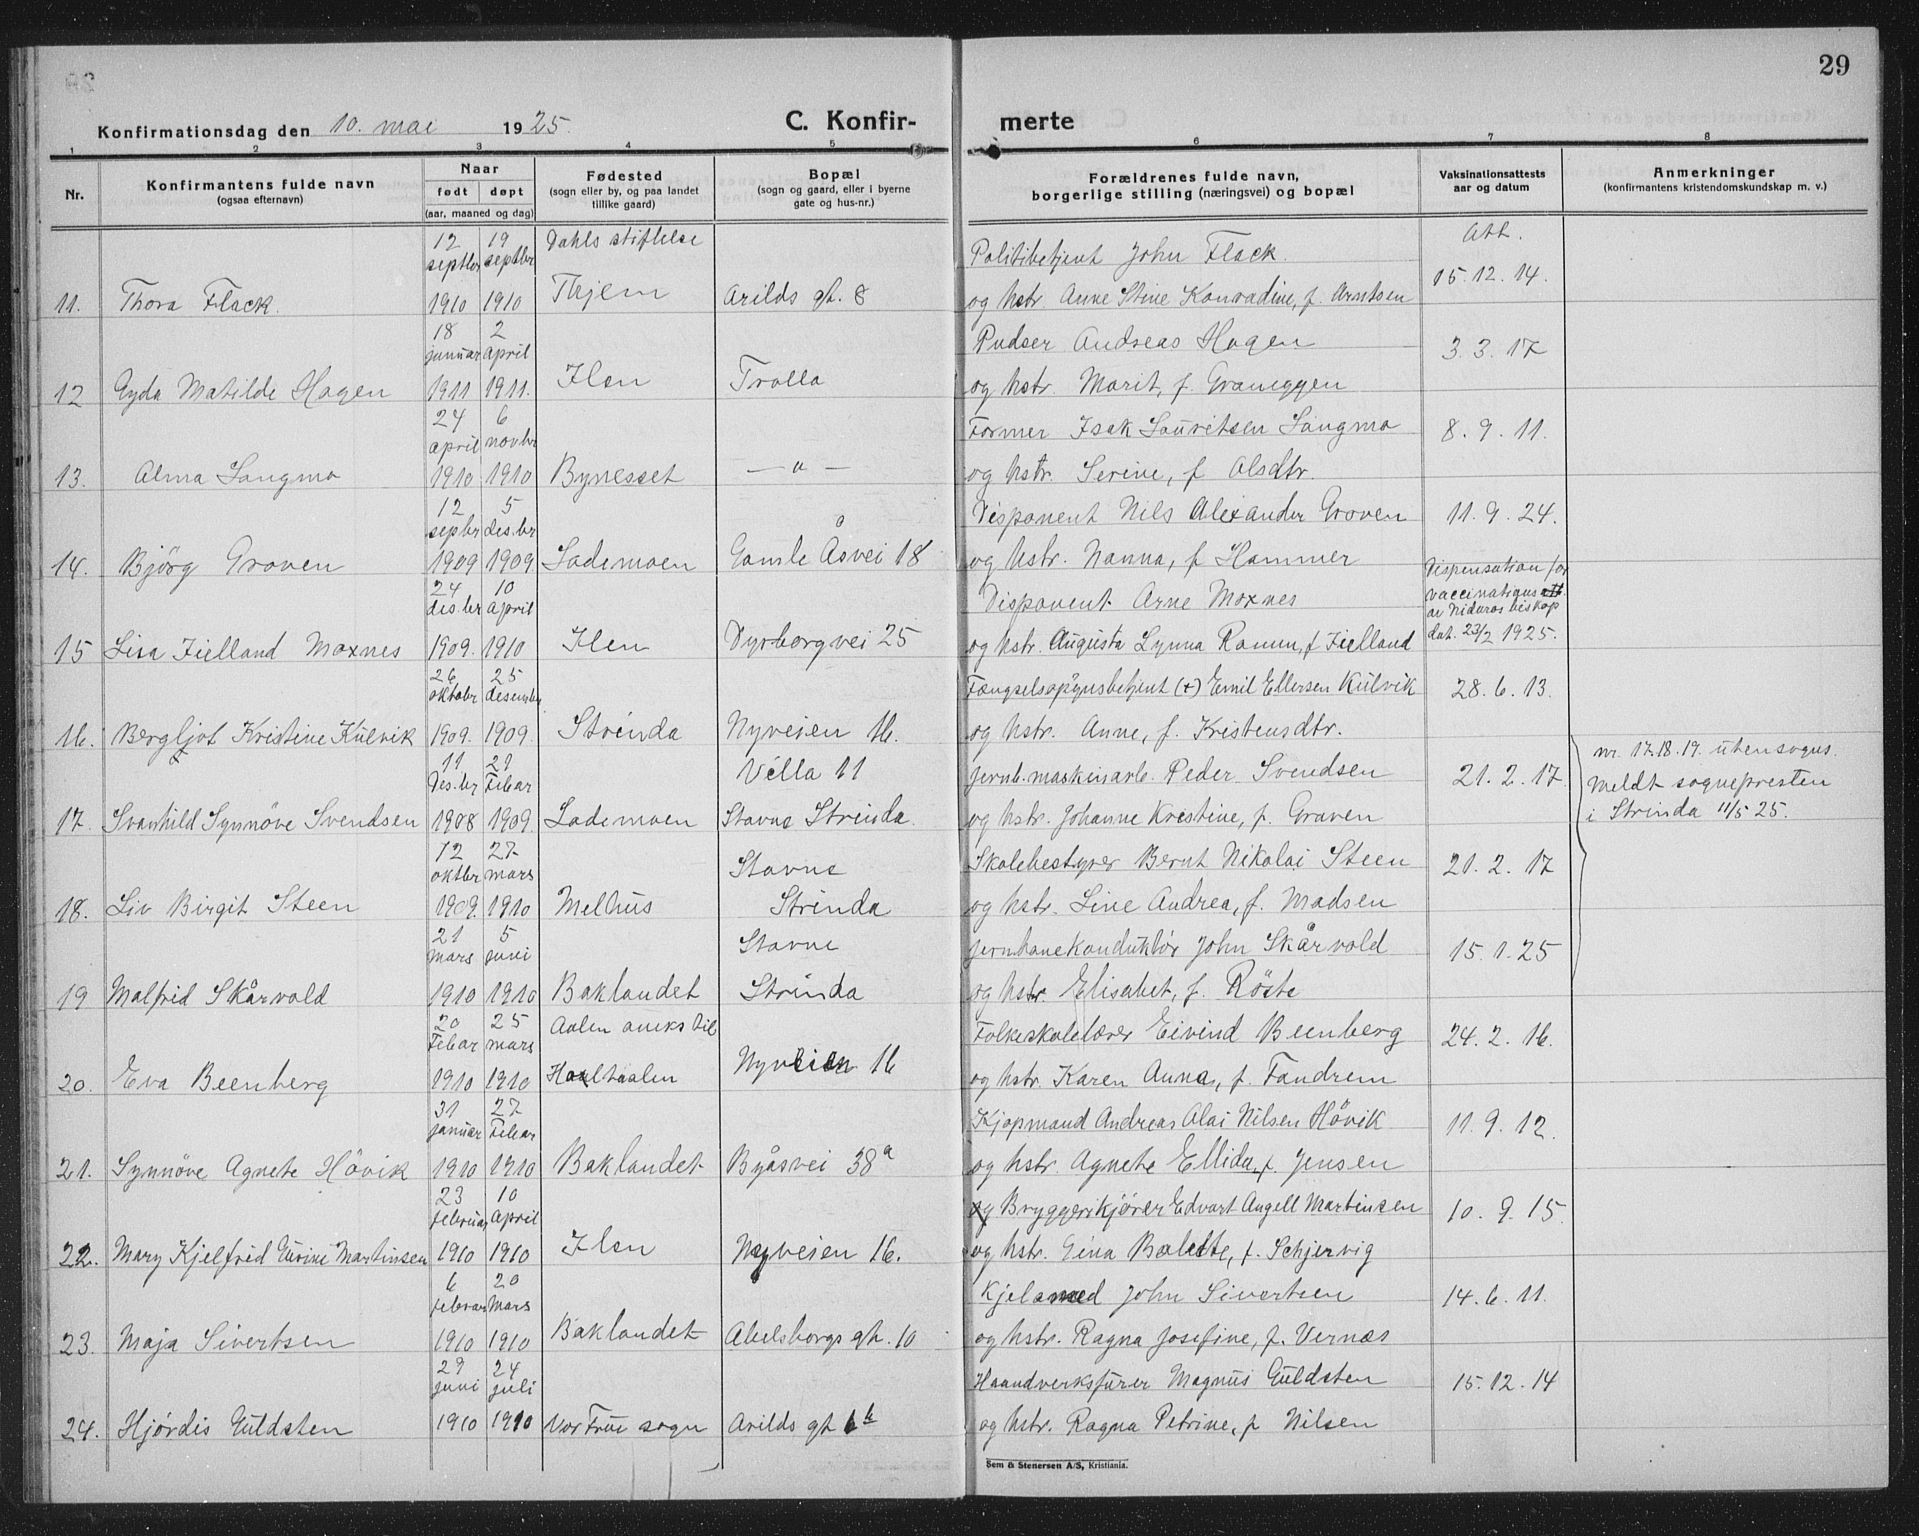 29
Konfirmationsdag den 10. mai 1925. C. Konfirmerte
1 2 3 4 5 6 7 8
Nr. Konfirmantens fulde navn (ogsaa efternavn) Naar født døpt (aar, maaned og dag) Fødested (sogn eller by, og paa landet tillike gaard) Bopæl (sogn og gaard, eller i byerne gate og hus-nr.) Forældrenes fulde navn, borgerlige stilling (næringsvei) og bopæl Vaksinationsattests aar og datum Anmerkninger (konfirmantens kristendomskundskap m. v.)
12 septbr 19 septbr Dahls stiftelse Politibetjent John Flack. Att. 15.12.14.
11. Thora Flack. 1910 1910 Thjem Arilds gt. 8 og hstr. Anne Stine Konradine, f. Arntsen
18 januar 2 april Pudser Andreas Hagen 3.3.17
12 Gyda Matilde Hagen 1911 1911. Ilen Trolla og hstr. Marit, f. Graneggen
24 april 6 novbr Former Isak Lauritsen Langmo 8.9.11.
13. Alma Langmo 1910 1910 Bynesset — " — og hstr. Serine, f Olsdtr.
12 septbr 5 des.br Disponent Nils Alexander Groven 11.9.24.
14. Bjørg Groven 1909 1909. Lademoen Gamle Åsvei 18 og hstr. Nanna, f Hammer
24 des.br 10 april Disponent Arne Moxnes Dispensation for vaccinationsatt av Nidaros biskop dat. 23/2 1925.
15 Lisa Fielland Moxnes 1909. 1910 Ilen Dyrborgvei 25 og hstr. Augusta Lynna Ramm, f Fielland
26 oktober 25 desember Fængselsopsynsbetjent (+) Emil Ellersen Kulvik 28.6.13.
16. Bergljot Kristine Kulvik 1909. 1909. Strinda Nyveien 16. og hstr. Anne, f. Kristensdtr.
11 Des.br 21 Febar Villa 11 Jernb.maskinarb. Peder Svendsen 21.2.17 nr. 17.18.19. utensogns. Meldt sognepresten i Strinda 11/5 25.
17. Svanhild Synnöve Svendsen 1908 1909. Lademoen Stavne Strinda. og hstr. Johanne Kristine, f. Graven
12 oktbr 27 mars Stavne Skolebestyrer Bernt Nikolai Steen 21.2.17
18. Liv Birgit Steen 1909. 1910 Melhus Strinda og hstr. Line Andrea, f. Madsen
21 Mars 5 juni Stavne Jernbanekonduktör John Skårvold 15.1.25
19 Malfrid Skårvold 1910 1910 Baklandet Strinda og hstr. Elisabet, f. Röste
20 Febar 25 mars Aalen aneks til Folkeskolelærer Eivind Beenberg 24.2.16.
20. Eva Beenberg 1910 1910 Holtaalen Nyveien 16 og hstr. Karen Anna, f. Tandrem
31 januar 27 Febar Kjøpmand Andreas Olai Nilsen Hövik 11.9.12.
21. Synnöve Agnete Hövik 1910 1910 Baklandet Byåsvei 38 a og hstr. Agnete Ellida, f. Jensen
23 februar 10 April og Bryggerikjører Edvart Angell Martinsen 10.9.15.
22. Mary Kjelfrid Eurine Martinsen 1910 1910 Ilen Nyveien 16. og hstr. Gina Bolette, f. Schjervig
6 februar 20 Mars Kjelsmed John Sivertsen 14.6.11.
23. Maja Sivertsen 1910 1910 Baklandet Abelsborgs gt. 10 og hstr. Ragna Josefine, f. Vernæs
29 juni 24 juli Haandverksfører Magnus Guldsten 15.12.14
24. Hjørdis Guldsten 1910 1910 Vor Frue sogn Arilds gt 6 b og hstr. Ragna Petrine, f Nilsen
Sem & Stenersen A/S, Kristiania.